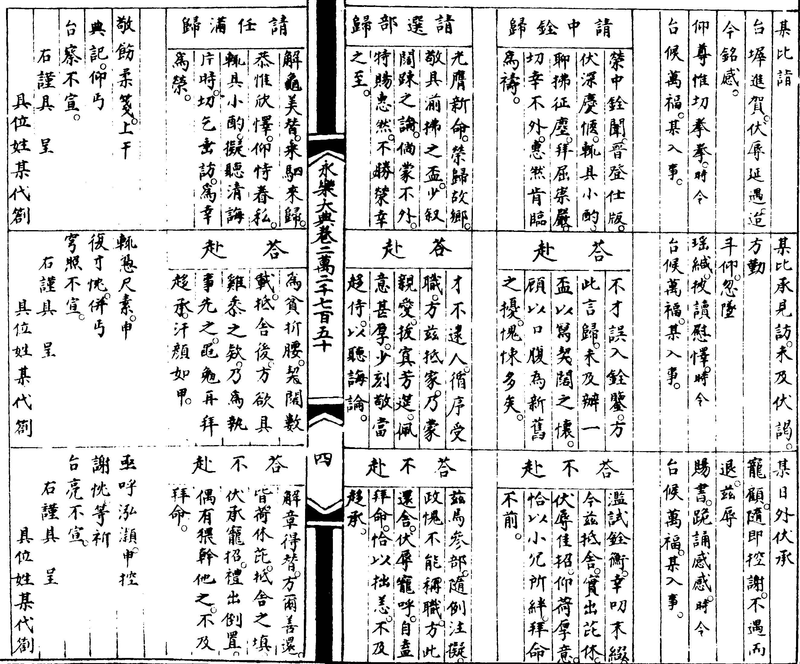 某比詣
台墀進賀。伏辱延遇。迨
今銘感。
仰尊惟切拳拳。時令
台候萬福。某入事。
請中銓歸
榮中銓闈。晉登仕版。
伏深慶愜。輒具小酌。
聊拂征塵。拜屈崇嚴。
切幸不外。惠然肯臨
為禱。
請選部歸
光膺新命。榮歸故鄉。
敬具前拂之盃。少叙
闊踈之論。倘蒙不外。
特賜惠然。不勝榮幸
之至。
請任滿歸
解龜美替。乘駟來歸。
恭惟欣懌。仰恃眷私。
輒具小酌。擬聽清誨
片時。切乞垂訪。為幸
為榮。
敬飭柔箋。上干
典記。仰丐
台察不宣。
右謹具 呈
具位姓某代劄
某比承見訪。未及伏謁。
方勤
斗仰。忽墜
瑶緘。披讀慰懌。時令
台候萬福。某入事。
答赴
不才誤入銓鑒。方
此言歸。未及辦一
盃以寫契闊之懷。
顧以口腹為新舊
之擾。愧悚多矣。
答赴
才不逮人。循序受
職。方兹抵家。乃蒙
親愛。拔寘芳筵。佩
意甚厚。少刻敬當
趍侍。以聽誨論。
答赴
為貧折腰。契闊數
載。抵舍後。方欲具
雞黍之欵。乃為執
事先之。黽勉再拜
趍承。汗顔如甲。
輒憑尺素。申
復寸忱。併丐
穹照不宣。
右謹具 呈
具位姓某代劄
某日外伏承
寵顧。隨即控謝。不遇而
退。兹辱
賜書。跪誦感感。時令
台候萬福。某入事。
答不赴
濫試銓衡。幸叨末綴。
今兹抵舍。實出芘休。
伏辱佳招。仰荷厚意。
恰以小兒所絆。拜命
不前。
答不赴
兹為參部。隨例注擬。
政愧不能稱職。方此
還舍。伏辱寵呼。自益
拜命。恰以拙恙。不及
趍承。
答不赴
解章得替。方爾善還。
皆荷休芘。抵舍之填
伏承寵招。禮出倒置。
偶有猥幹他之。不及
拜命。
亟呼泓潁。申控
謝忱。等祈
台亮不宣。
右謹具 呈
具位姓某代劄
永樂大典卷二萬二千七百五十
四